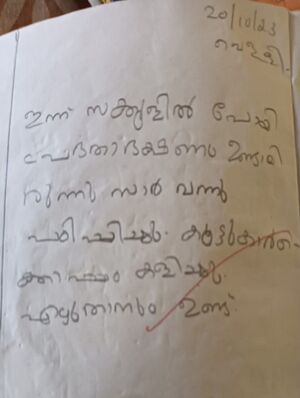 20/10/23
വെള്ളി.
ഇന്ന് സക്കൂളിൽ പോയി
പ്രഭാതഭക്ഷണം ഉണ്ടായി
രുന്നു സാർ വന്നു
പഠിപ്പിച്ചു. കൂട്ടുകാർ
ക്കൊപ്പം കളിച്ചു.
എഴുതാനും ഉണ്ട്.